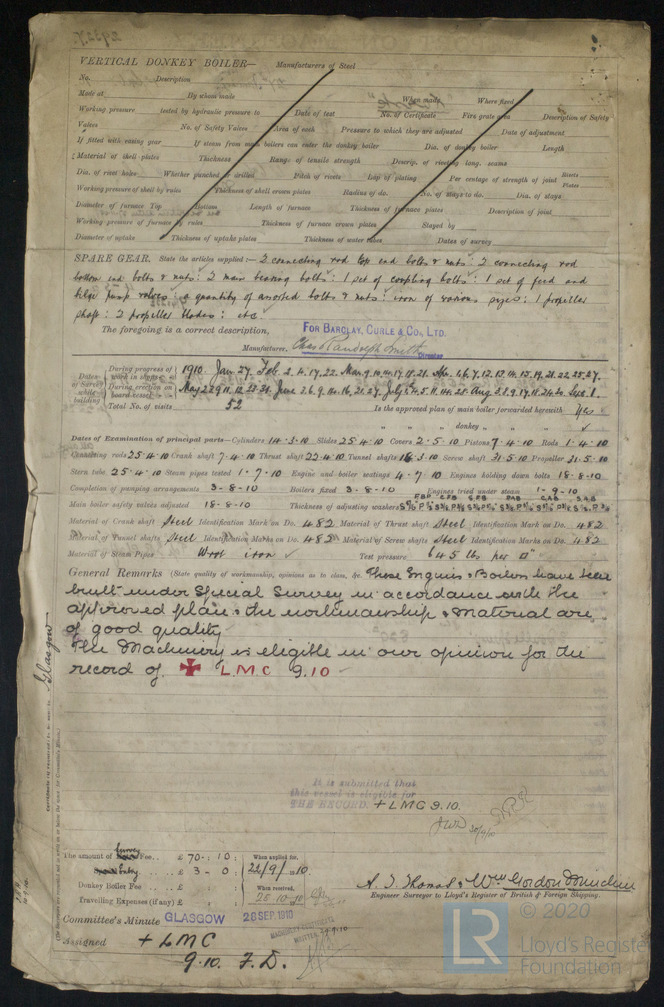 VERTICAL DONKEY BOILER— Manufacturers of Steel
No. Description
Made at By whom made When made Where fixed
Working pressure tested by hydraulic pressure to Date of test No. of Certificate Fire grate area Description of Safety
Valves No. of Safety Valves Area of each Pressure to which they are adjusted Date of adjustment
If fitted with easing gear If steam from main boilers can enter the donkey boiler Dia. of donkey boiler Length
Material of shell plates Thickness Range of tensile strength Descrip. of riveting long. seams
Dia. of rivet holes Whether punched or drilled Pitch of rivets Lap of plating Per centage of strength of joint Rivets Plates
Working pressure of shell by rules Thickness of shell crown plates Radius of do. No. of stays to do. Dia. of stays
Diameter of furnace Top Bottom Length of furnace Thickness of furnace plates Description of joint
Working pressure of furnace by rules Thickness of furnace crown plates Stayed by
Diameter of uptake Thickness of uptake plates Thickness of water tubes Dates of survey
SPARE GEAR. State the articles supplied:— 2 connecting rod top end bolts & nuts: 2 connecting rod
bottom end bolts & nuts: 2 main bearing bolts: 1 set of coupling bolts: 1 set of feed and
bilge pump valves: a quantity of assorted bolts & nuts: iron of various sizes: 1 propeller
shaft: 2 propeller blades: etc
The foregoing is a correct description,
FOR BARCLAY, CURLE & CO., LTD.
Manufacturer. Chas Randolph Smith Director
Dates of Survey while building
During progress of work in shops 1910. Jan 27. Feb 2.4.17.22. Mar
During erection on board vessel May
Total No. of visits 52 Is the approved plan of main boiler forwarded herewith Yes
" " " donkey " "
Dates of Examination of principal parts—Cylinders 14.3.10 Slides 25.4.10 Covers 2.5.10 Pistons 7.4.10 Rods 1.4.10
Connecting rods 25.4.10 Crank shaft 7.4.10 Thrust shaft 22.4.10 Tunnel shafts 18.3.10 Screw shaft 31.5.10 Propeller 31.5.10
Stern tube 25.4.10 Steam pipes tested 1.7.10 Engine and boiler seatings 4.7.10 Engines holding down bolts 18.8.10
Completion of pumping arrangements 3-8-10 Boilers fixed 3-8-10 Engines tried under steam 1-9-10
Main boiler safety valves adjusted 18-8-10 Thickness of adjusting washers
Material of Crank shaft Steel Identification Mark on Do. 482 Material of Thrust shaft Steel Identification Mark on Do. 482
Material of Tunnel shafts Steel Identification Marks on Do. 482 Material of Screw shafts Steel Identification Marks on Do. 482
Material of Steam Pipes Wrot iron Test pressure 645 lbs per □"
General Remarks (State quality of workmanship, opinions as to class, &c. These Engines & Boilers have been
built under Special Survey in accordance with the
approved plans & the workmanship & material are
of good quality
The Machinery is eligible in our opinion for the
record of ✠ LMC 9.10
Glasgow
It is submitted that
this vessel is eligible for
THE RECORD. + LMC 9.10.
The amount of Survey Fee.. £ 70 : 10 : When applied for,
£ 3 - 0 : 22/9/1910.
Donkey Boiler Fee £ : : When received,
Travelling Expenses (if any) £ : : 25.10.10
Engineer Surveyor to Lloyd's Register of British & Foreign Shipping.
Committee's Minute GLASGOW 26 SEP. 1910
Assigned + LMC
9.10. F.D.
© 2020
LR
Lloyd's Register
Foundation